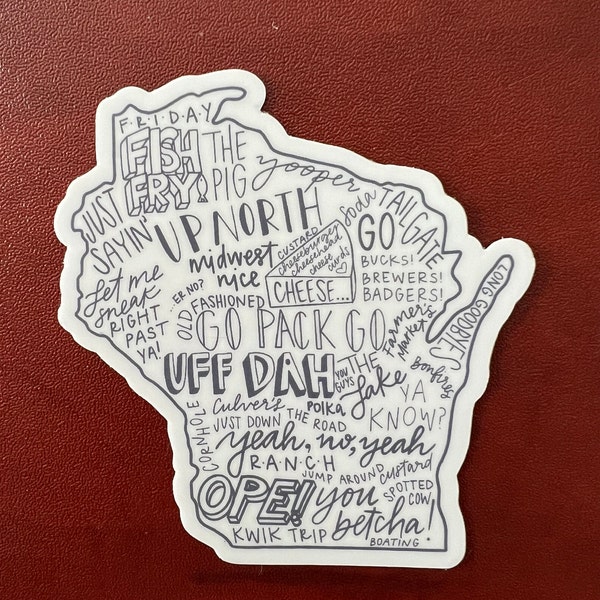 F·R·I·D·A·Y
FISH
FRY
THE
PIG
yooper
JUST
SAYIN'
UP NORTH
Soda
TAILGATE
GO
BUCKS!
BREWERS!
BADGERS!
LONG GOODBYES
midwest
nice
CUSTARD
cheeseburger
cheesehead
cheese
curds
CHEESE...
let me
sneak
RIGHT
PAST
YA!
ER NO?
OLD
FASHIONED
GO PACK GO
Farmer's
Market's
UFF DAH
YOU
GUYS
THE
Lake
bonfires
YA
KNOW?
CORNHOLE
Culver's
POLKA
JUST DOWN THE ROAD
yeah, no, yeah
R·A·N·C·H
JUMP AROUND
custard
SPOTTED
COW
OPE!
you
betcha!
KWIK TRIP
BOATING